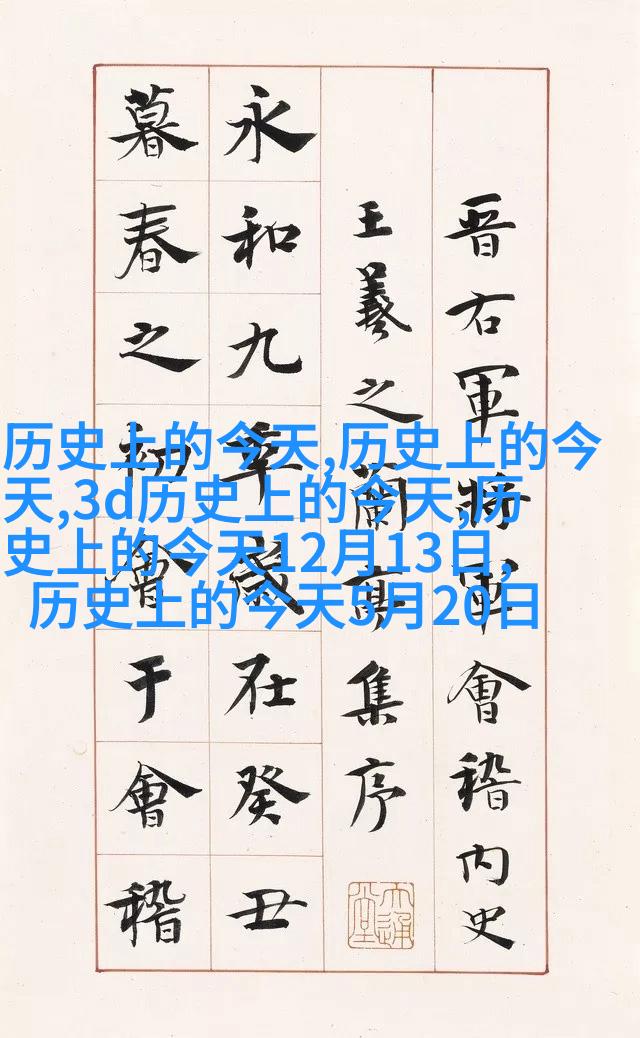 晋右軍將軍會稽内史
王羲之蘭亭集序
永和九年歲在癸丑
暮春之初會于會稽
历史上的今天,历史上的今
天,3d历史上的今天,历
史上的今天12月13日,
历史上的今天5月20日